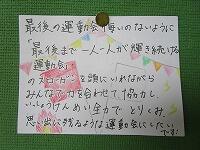 最後の運動会 悔いのないように
「最後まで一人一人が輝き続ける
運動会」
のスローガンを頭にいれながら
みんなで力を合わせて協力し、
いっしょうけんめい全力でとりくみ、
思い出に残るような運動会にしたい
です!